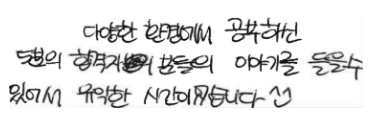 다양한 환경에서 공부하신
분들의 이야기를 들을수
있어서 유익한 시간이었습니다 ^^